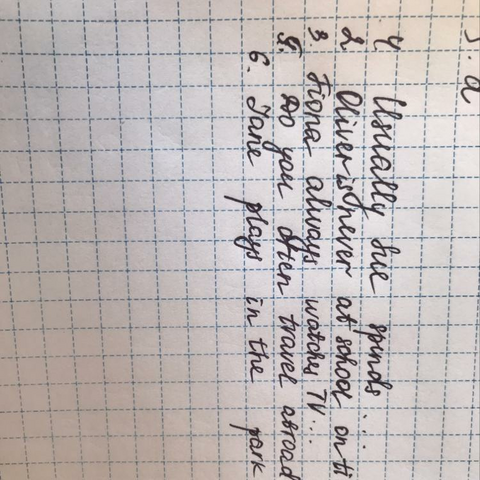 ). a
4 Usually Sue spends ...
2 Oliver is never at school on ti
3. Fiona always watches TV...
5. Do you often travel abroad
6. Jane plays in the park